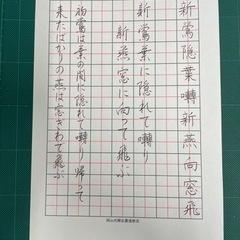 新鶯隠葉囀新燕向窓飛
新鶯葉に隠れて囀り
新燕窓に向って飛ぶ
初鶯は葉の間に隠れて囀り帰って
来たばかりの燕は窓ぎわで飛ぶ